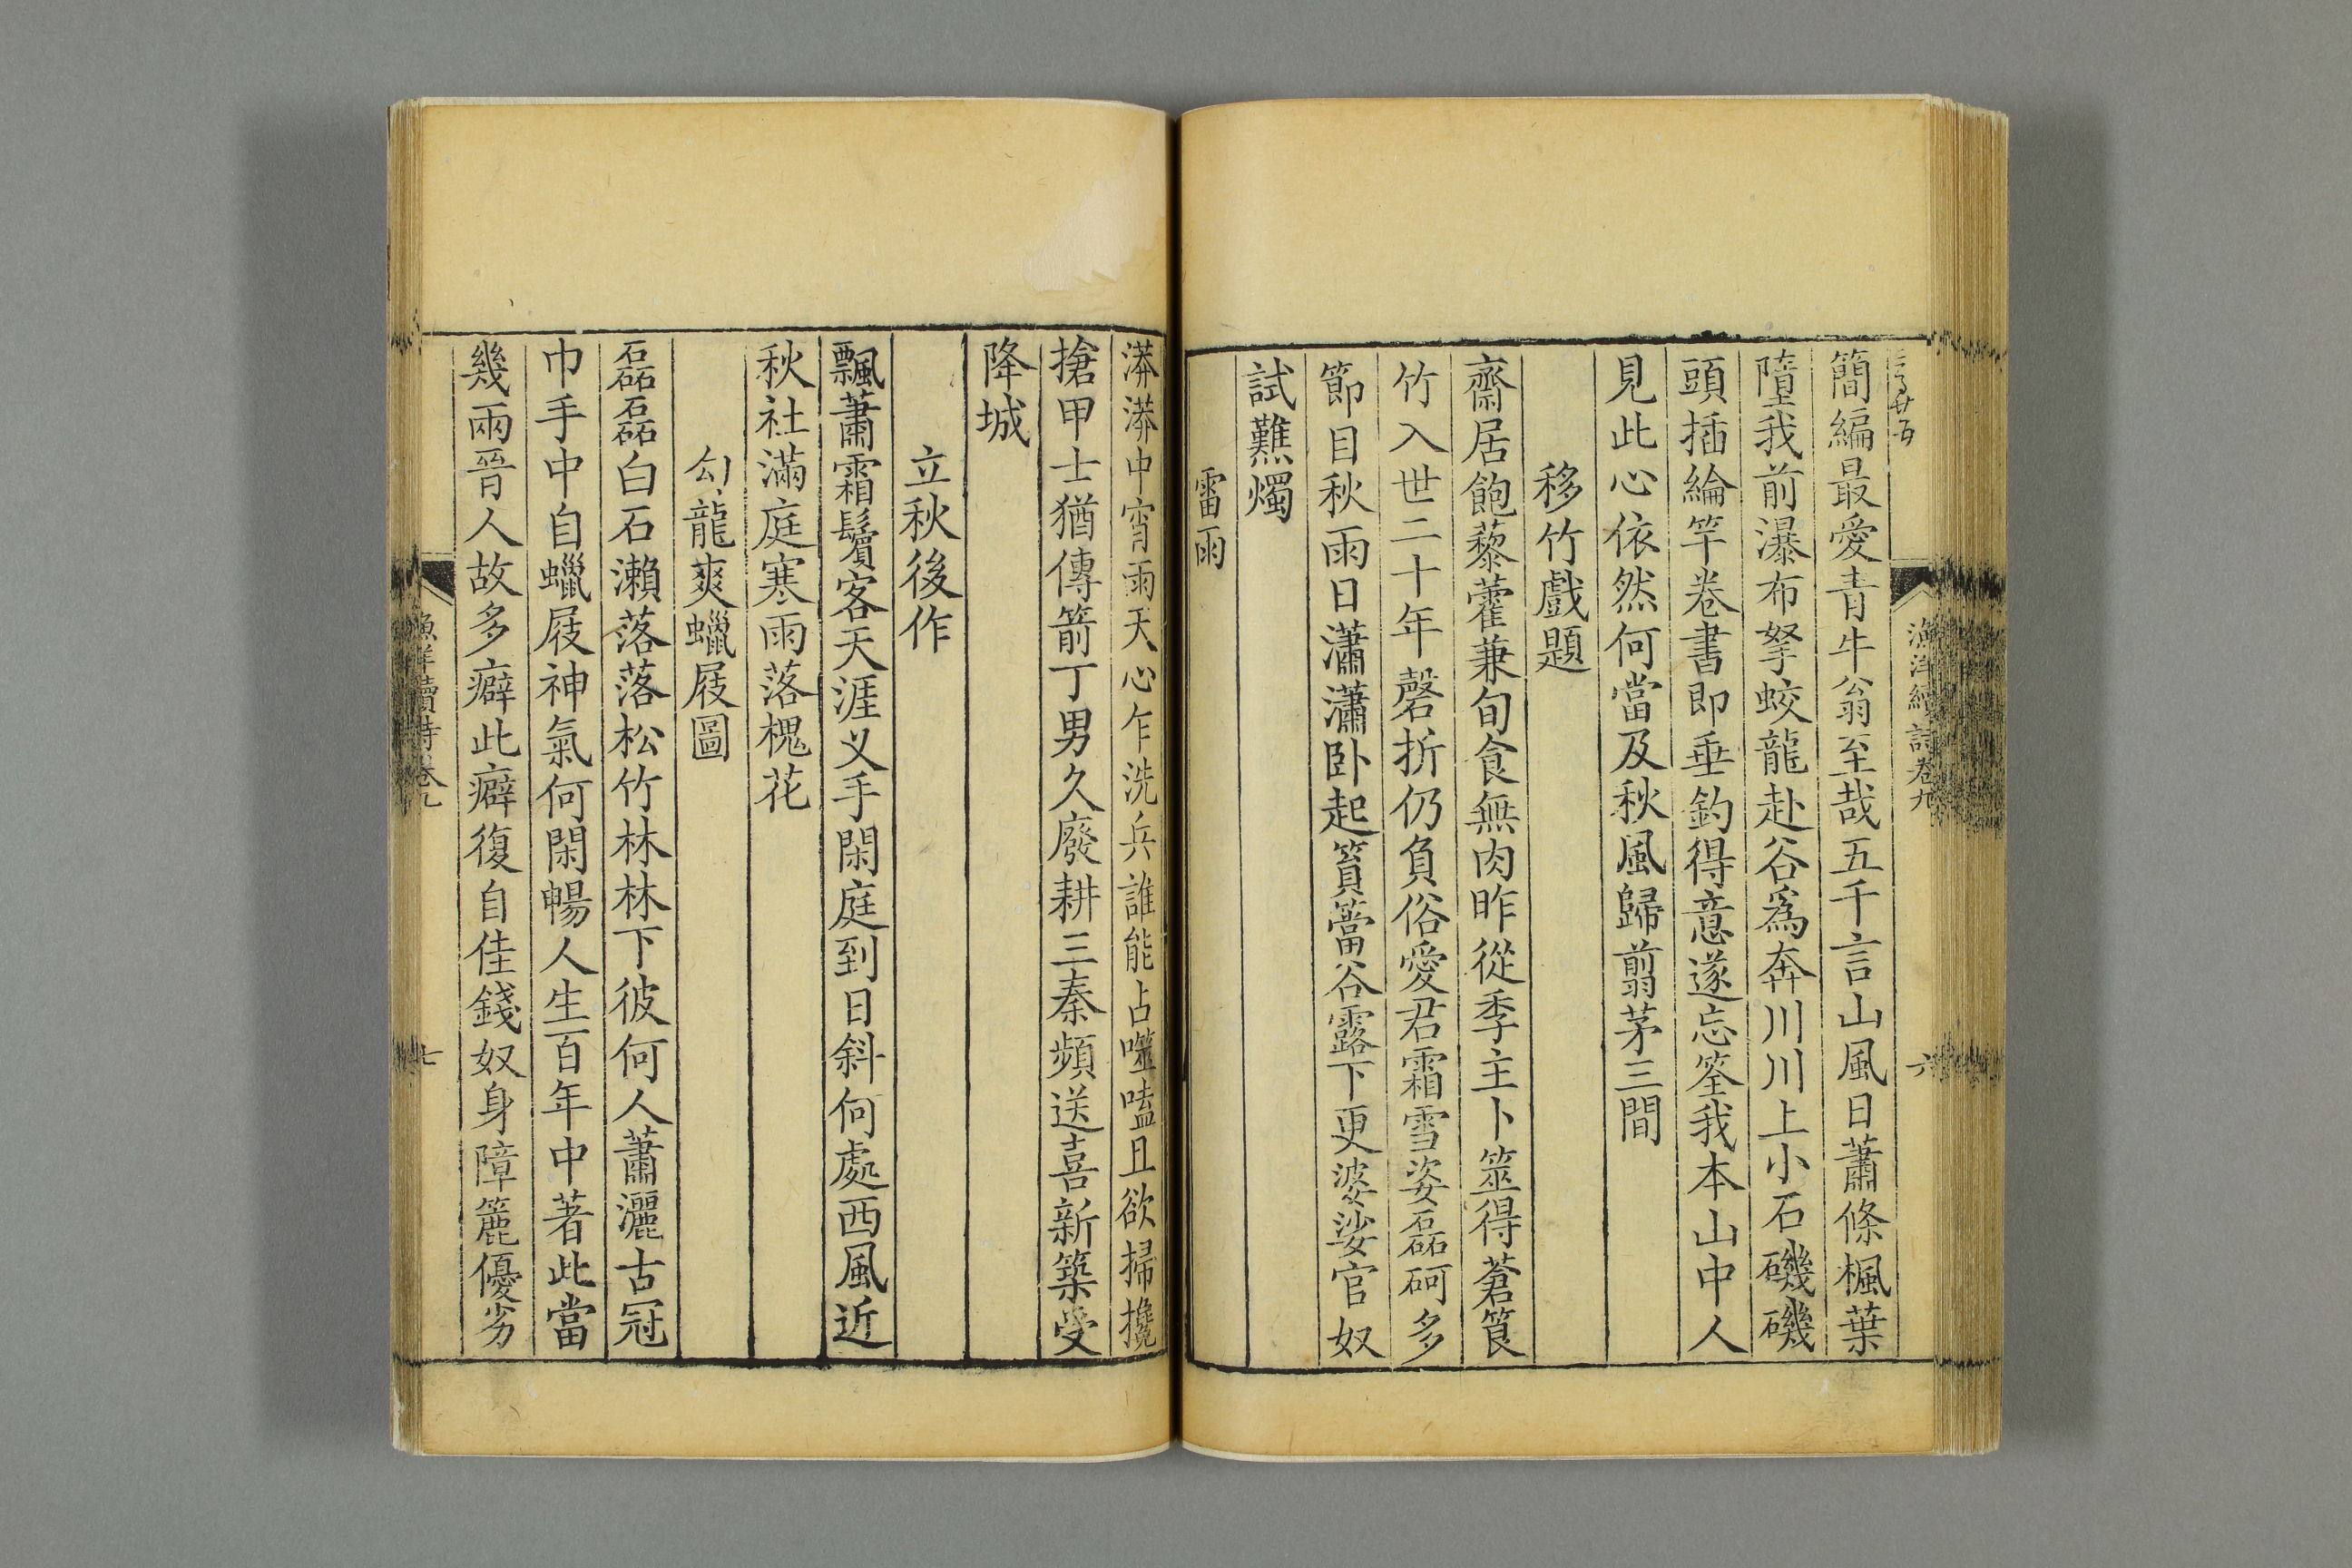 漁洋續詩卷九
六
簡編最愛青牛翁至哉五千言山風日蕭條楓葉
墮我前瀑布拏蛟龍赴谷爲奔川川上小石磯磯
頭插綸竿卷書即垂釣得意遂忘筌我本山中人
見此心依然何當及秋風歸翦茅三間
移竹戲題
齋居飽藜藿兼旬食無肉昨從季主卜筮得蒼筤
竹入世二十年磬折仍負俗愛君霜雪姿磊砢多
節目秋雨日瀟瀟卧起篔簹谷露下更婆娑官奴
試爇燭
雷雨
漭漭中宵雨天心乍洗兵誰能占噬嗑且欲掃攙
搶甲士猶傳箭丁男久廢耕三秦頻送喜新築受
降城
立秋後作
飄蕭霜鬢客天涯乂手閑庭到日斜何處西風近
秋社滿庭寒雨落槐花
勾龍爽蠟屐圖
磊磊白石瀨落落松竹林林下彼何人蕭灑古冠
巾手中自蠟屐神氣何閑暢人生百年中著此當
幾兩晉人故多癖此癖復自佳錢奴身障簏優劣
漁洋續詩卷九
七